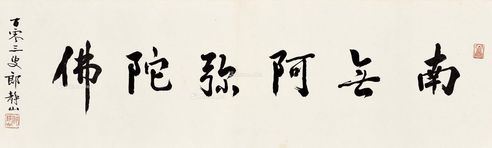 南无阿弥陀佛
百零三叟郎静山